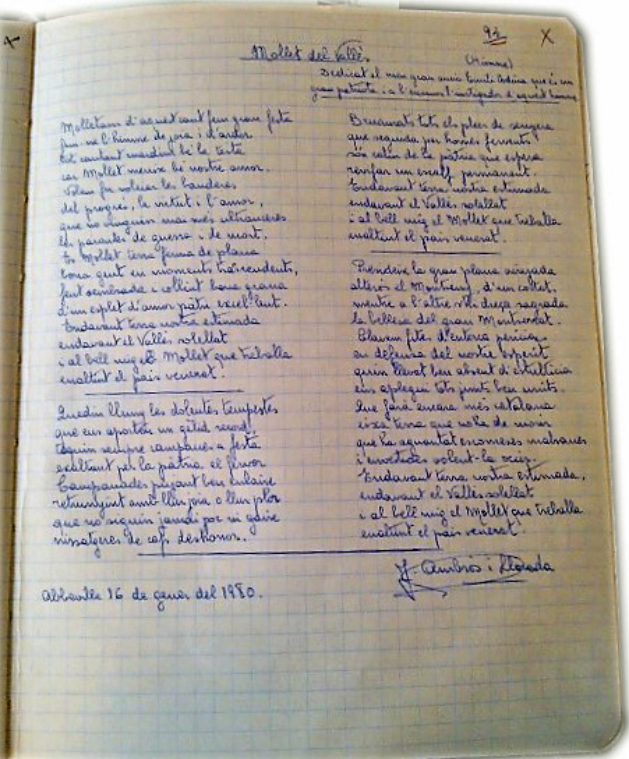 94
X
Mollet del Vallès
(Himne)
Dedicat al meu gran amic Emili que és un
gran patriota i a l'ensems l'instigador d'aquest himne
Molletans d'aquet cant feu gran festa
fem-ne l'himne de joia i d'ardor
tot cantant mantinc bé la testa
car Mollet mereix bé nostre amor.
Volem fer voleiar les banderes
del progrés, la virtut i l'amor,
que no vinguin mai més ultranceres
les paraules de guerra i de mort.
És Mollet terra ferma de plana
bona gent en moments trascendents,
fent sembrada i collint bona grana
d'un esplet d'amor patri excel·lent.
Endavant terra nostra estimada
endavant el Vallès solellat
i al bell mig el Mollet que treballa
enaltint el país venerat.
Quedin lluny les dolentes tempestes
que ens aporten un gèlid record,
siguin sempre campanes a festa
exaltant per la pàtria el fervor
Campanades pujant ben enlaire
retrunyint amb llur joia o llur plor
que no siguin jamai por ni gaire
missatgeres de cap deshonor.
Abbeville 16 de gener del 1980.
Brucursats tots els plecs de senyera
que seguida per homes fervents
són catius de la pàtria que espera
renfar un escalf permanent.
Endavant terra nostra estimada
endavant el Vallès solellat
i al bell mig el Mollet que treballa
enaltint el país venerat.
Prendere la gran plana airejada
alterós el Montseny, d'un costat,
mentre a l'altre s'hi dreça sagrada
la bellesa del gran Montserrat.
Clavem fites d'entorn
en defensa del nostre esperit
quin llevat ben absent d'estultícia
ens aplegui tots junts ben units.
Que farà encara més catalana
eixa terra que no ha de morir
que ha aguantat escomeses malsanes
i envestides volent-la occir.
Endavant terra nostra estimada,
endavant el Vallès solellat
i al bell mig el Mollet que treballa
enaltint el país venerat.
J. Ambrós i Lloreda